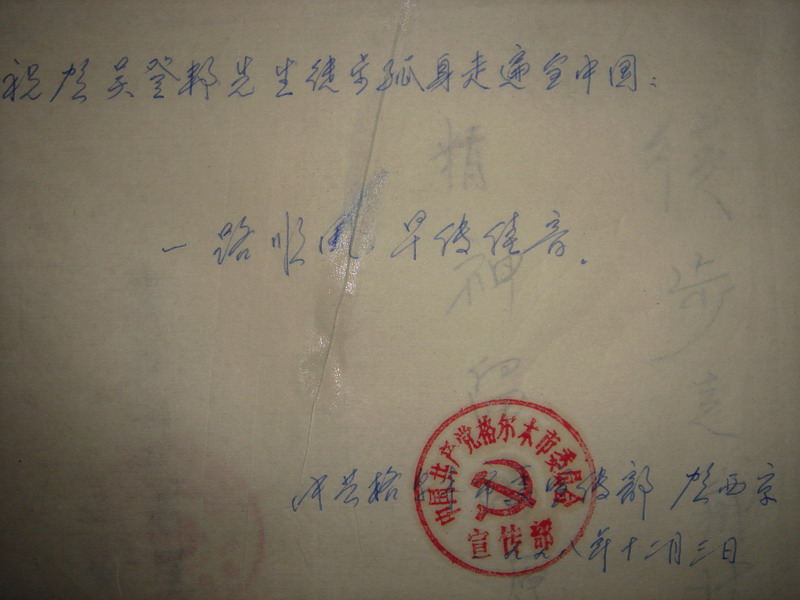 祝贺吴登邦先生徒步孤身走遍全中国：
一路顺风 早传佳音.
中共格尔木市委宣传部 贺西京
一九九八年十二月三日
中国共产党格尔木市委员会
宣传部
精神
徒步走